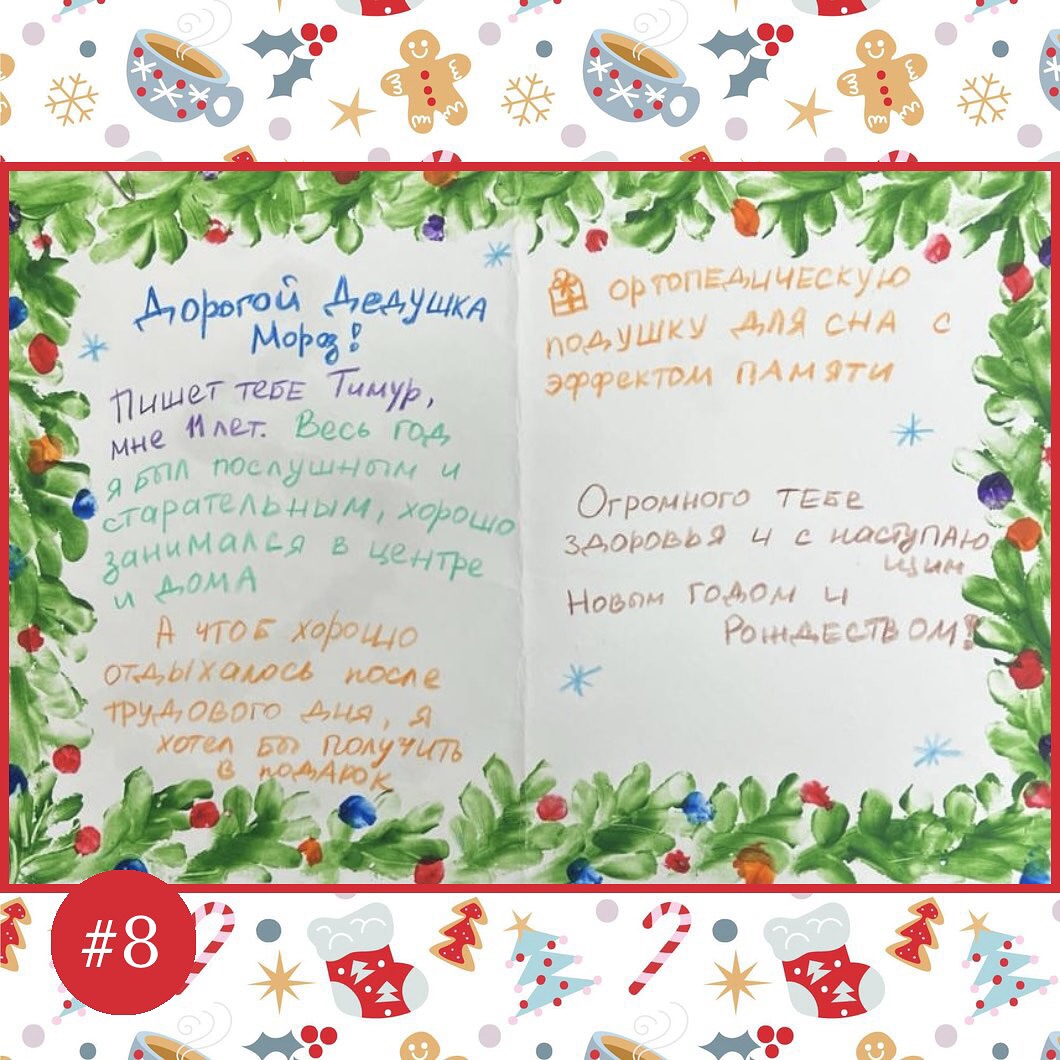 Дорогой Дедушка
Мороз!
Пишет тебе Тимур,
мне 11 лет. Весь год
я был послушным и
старательным, хорошо
занимался в центре
и дома
А чтоб хорошо
отдыхалось после
трудового дня, я
хотел бы получить
в подарок
ортопедическую
подушку для сна с
эффектом памяти
Огромного тебе
здоровья и с наступаю
щим
Новым годом и
Рождеством!
#8